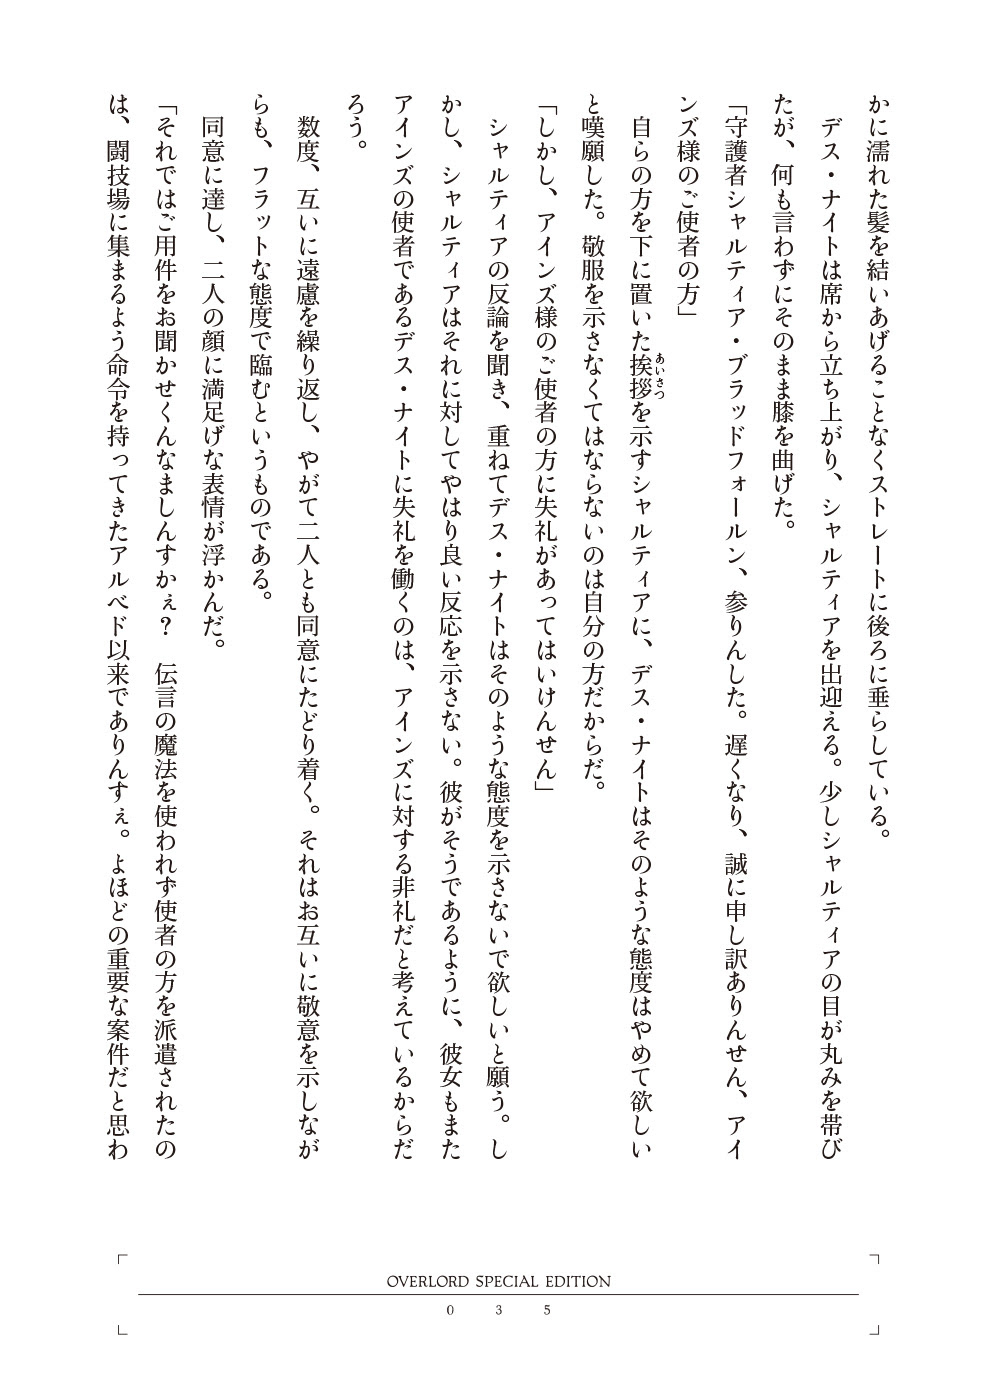 かに濡れた髪を結いあげることなくストレートに後ろに垂らしている。
　デス・ナイトは席から立ち上がり、シャルティアを出迎える。少しシャルティアの目が丸みを帯び
たが、何も言わずにそのまま膝を曲げた。
「守護者シャルティア・ブラッドフォールン、参りんした。遅くなり、誠に申し訳ありんせん、アイ
ンズ様のご使者の方」
　自らの方を下に置いた挨拶を示すシャルティアに、デス・ナイトはそのような態度はやめて欲しい
あいさつ
と嘆願した。敬服を示さなくてはならないのは自分の方だからだ。
「しかし、アインズ様のご使者の方に失礼があってはいけんせん」
　シャルティアの反論を聞き、重ねてデス・ナイトはそのような態度を示さないで欲しいと願う。し
かし、シャルティアはそれに対してやはり良い反応を示さない。彼がそうであるように、彼女もまた
アインズの使者であるデス・ナイトに失礼を働くのは、アインズに対する非礼だと考えているからだ
ろう。
　数度、互いに遠慮を繰り返し、やがて二人とも同意にたどり着く。それはお互いに敬意を示しなが
らも、フラットな態度で臨むというものである。
　同意に達し、二人の顔に満足げな表情が浮かんだ。
「それではご用件をお聞かせくんなましんすかぇ？　伝言の魔法を使われず使者の方を派遣されたの
は、闘技場に集まるよう命令を持ってきたアルベド以来でありんすぇ。よほどの重要な案件だと思わ
OVERLORD SPECIAL EDITION
0 3 5